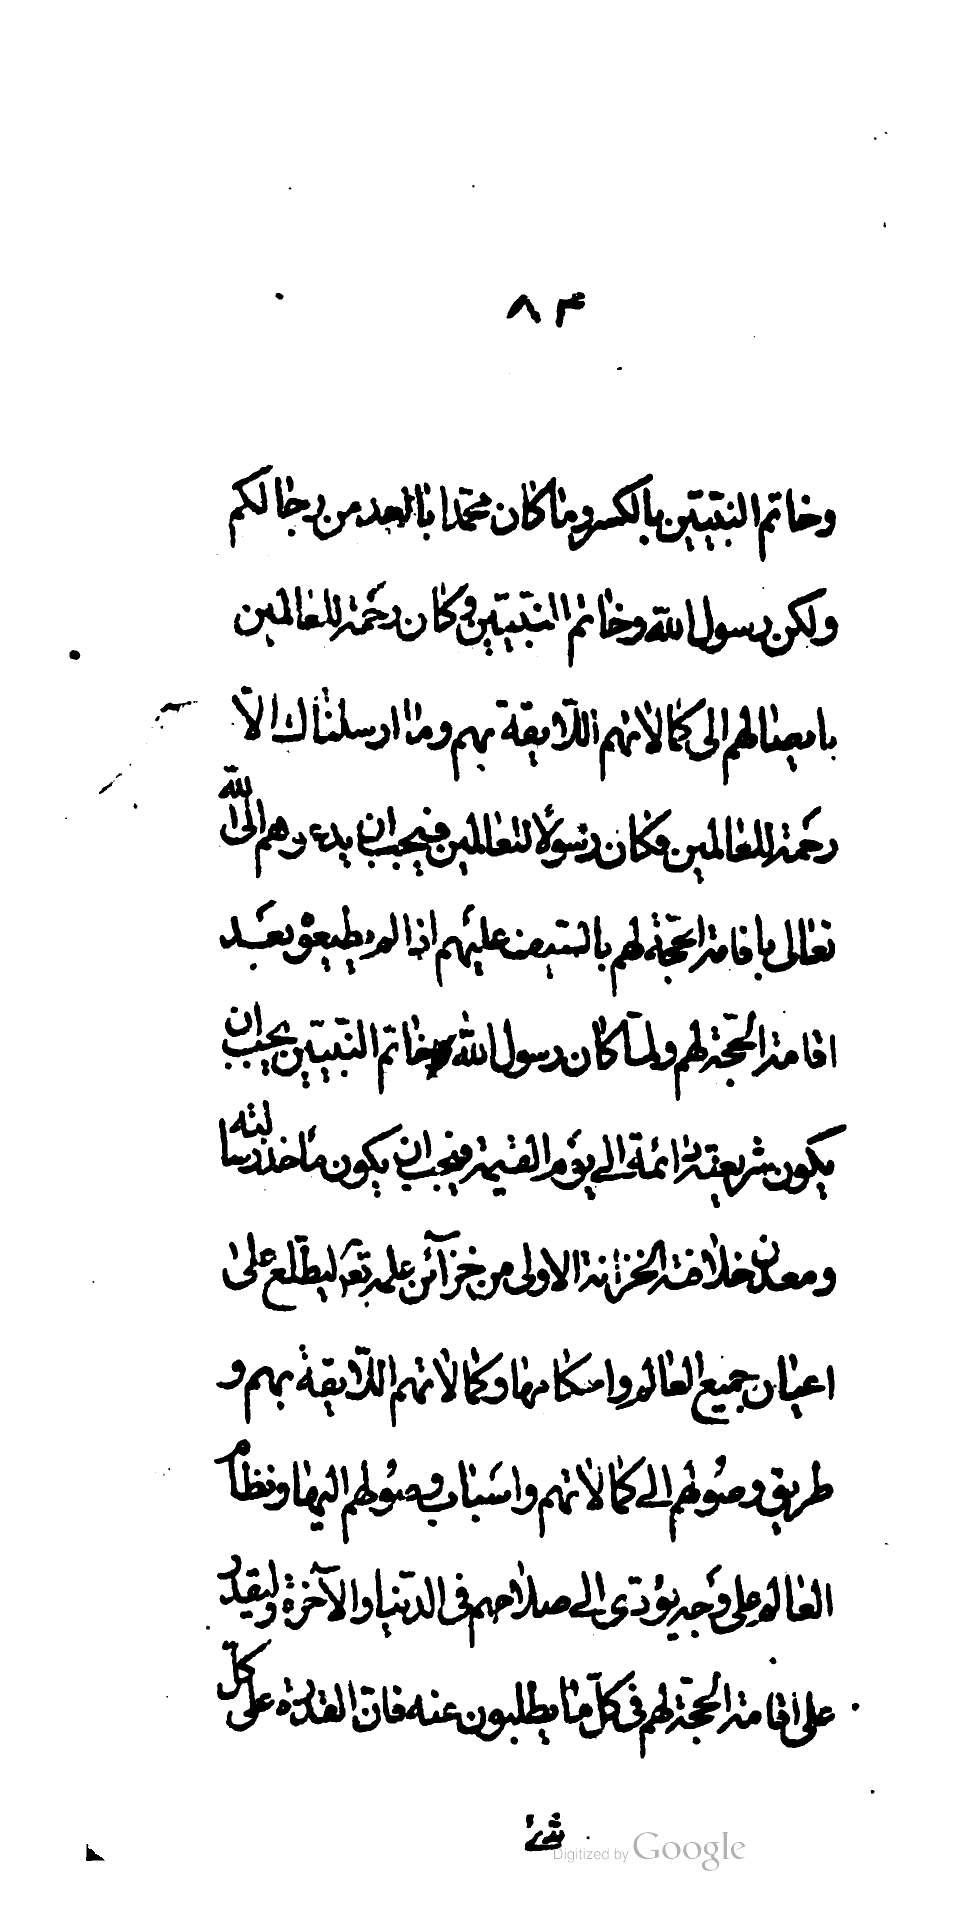 ٨٣
وخاتم النبيّين بالكسر وما كان محمّد ابا احد من رجالكم
ولكن رسول الله وخاتم النبيّين وكان رحمة للعالمين
بايصالهم الى كمالاتهم اللايقة بهم وما ارسلناك الّا
رحمة للعالمين فكان رسولا للعالمين فيجب ان يدعوهم الى الله
تعالى باقامة الحجّة لهم بالسّيف عليهم اذا لم يطيعوه بعد
اقامة الحجّة لهم ولمّا كان رسول الله وخاتم النبيّين يجب ان
يكون شريعته دائمة الى يوم القيمة فيجب ان يكون ماخذ رسالته
ومعدن خلافته الخزانة الاولى من خزآئن علمه تعالى ليطّلع على
اعيان جميع العالم وامكامها وكمالاتهم اللّايقة بهم و
طريق وصولهم الى كمالاتهم واسباب وصولهم اليها ونظام
العالم على وجه يؤدّى الى صلاحهم فى الدّنيا والآخرة وليقدر
على اقامة الحجّة لهم فى كلّ ما يطلبون عنه فانّ القدرة على كلّ
شئ
Digitized by Google